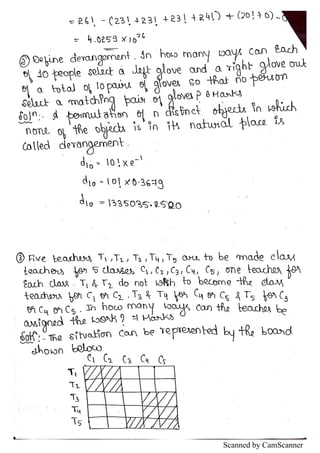 = 26! - (23! + 23! + 23! + 24!) + (20! + 0) - 0
= 4.0259 × 10²⁶
② Define derangement. In how many ways can each
of 10 people select a left glove and a right glove out
of a total of 10 pairs of gloves so that no person
select a matching pair of gloves? 8 Marks
Solⁿ:- A permutation of n distinct objects in which
none of the objects is in its natural place is
called derangement.
d₁₀ = 10! × e⁻¹
d₁₀ = 10! × 0.3679
d₁₀ = 1335035.2520
③ Five teachers T₁, T₂, T₃, T₄, T₅ are to be made class
teachers for 5 classes C₁, C₂, C₃, C₄, C₅, one teacher for
each class. T₁ & T₂ do not wish to become the class
teachers for C₁ or C₂. T₃ & T₄ for C₄ or C₅ & T₅ for C₃
or C₄ or C₅. In how many ways can the teacher be
assigned the work? 7 Marks
Solⁿ:- The situation can be represented by the board
shown below
C₁ C₂ C₃ C₄ C₅
T₁
T₂
T₃
T₄
T₅
Scanned by CamScanner